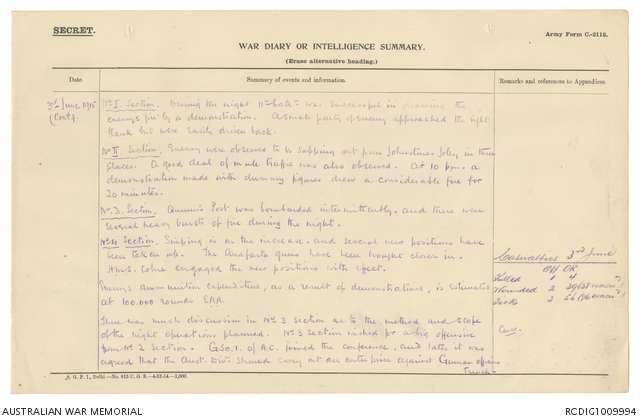 SECRET.
Army Form C.-2118.
WAR DIARY OR INTELLIGENCE SUMMARY.
(Erase alternative heading.)
Date.
Summary of events and information.
Remarks and references to Appendices.
3rd June 1915
(Contd.
No I. Section. During the night 11th batn was successful in drawing the
enemys fire by a demonstration. A small party of enemy approached the right
flank but were easily driven back.
No II Section. Enemy were observed to be sapping out from Johnstones Jolly in three
places. A good deal of mule traffic was also observed. At 10 pm. a
demonstration made with dummy figures drew a considerable fire for
20 minutes.
No. 3. Section. Quinn's Post was bombarded intermittently. and there were
several heavy bursts of fire during the night.
No. 4 Section. Sniping is on the increase. and several new positions have
been taken up. The Anafarta guns have been brought closer in.
H.M.S. Colne engaged the new positions with effect.
Enemys ammunition expenditure, as a result of demonstrations, is estimated
at 100.000 rounds S.A.A.
There was much discussion in No 3 section as to the method and scope
of the night operations planned. No 3 Section wished for a big offensive
from No 2 Section. G.S.O.1. of A.C. joined the conference, and later it was
agreed that the Aust. Divn should carry out an enterprise against German officers
Trench-
Casualties 3rd June
Off OR
Killed 1 4
Wounded 2
Sick 2
A. G. P. I., Delhi.
AUSTRALIAN WAR MEMORIAL
RCDIG1009994